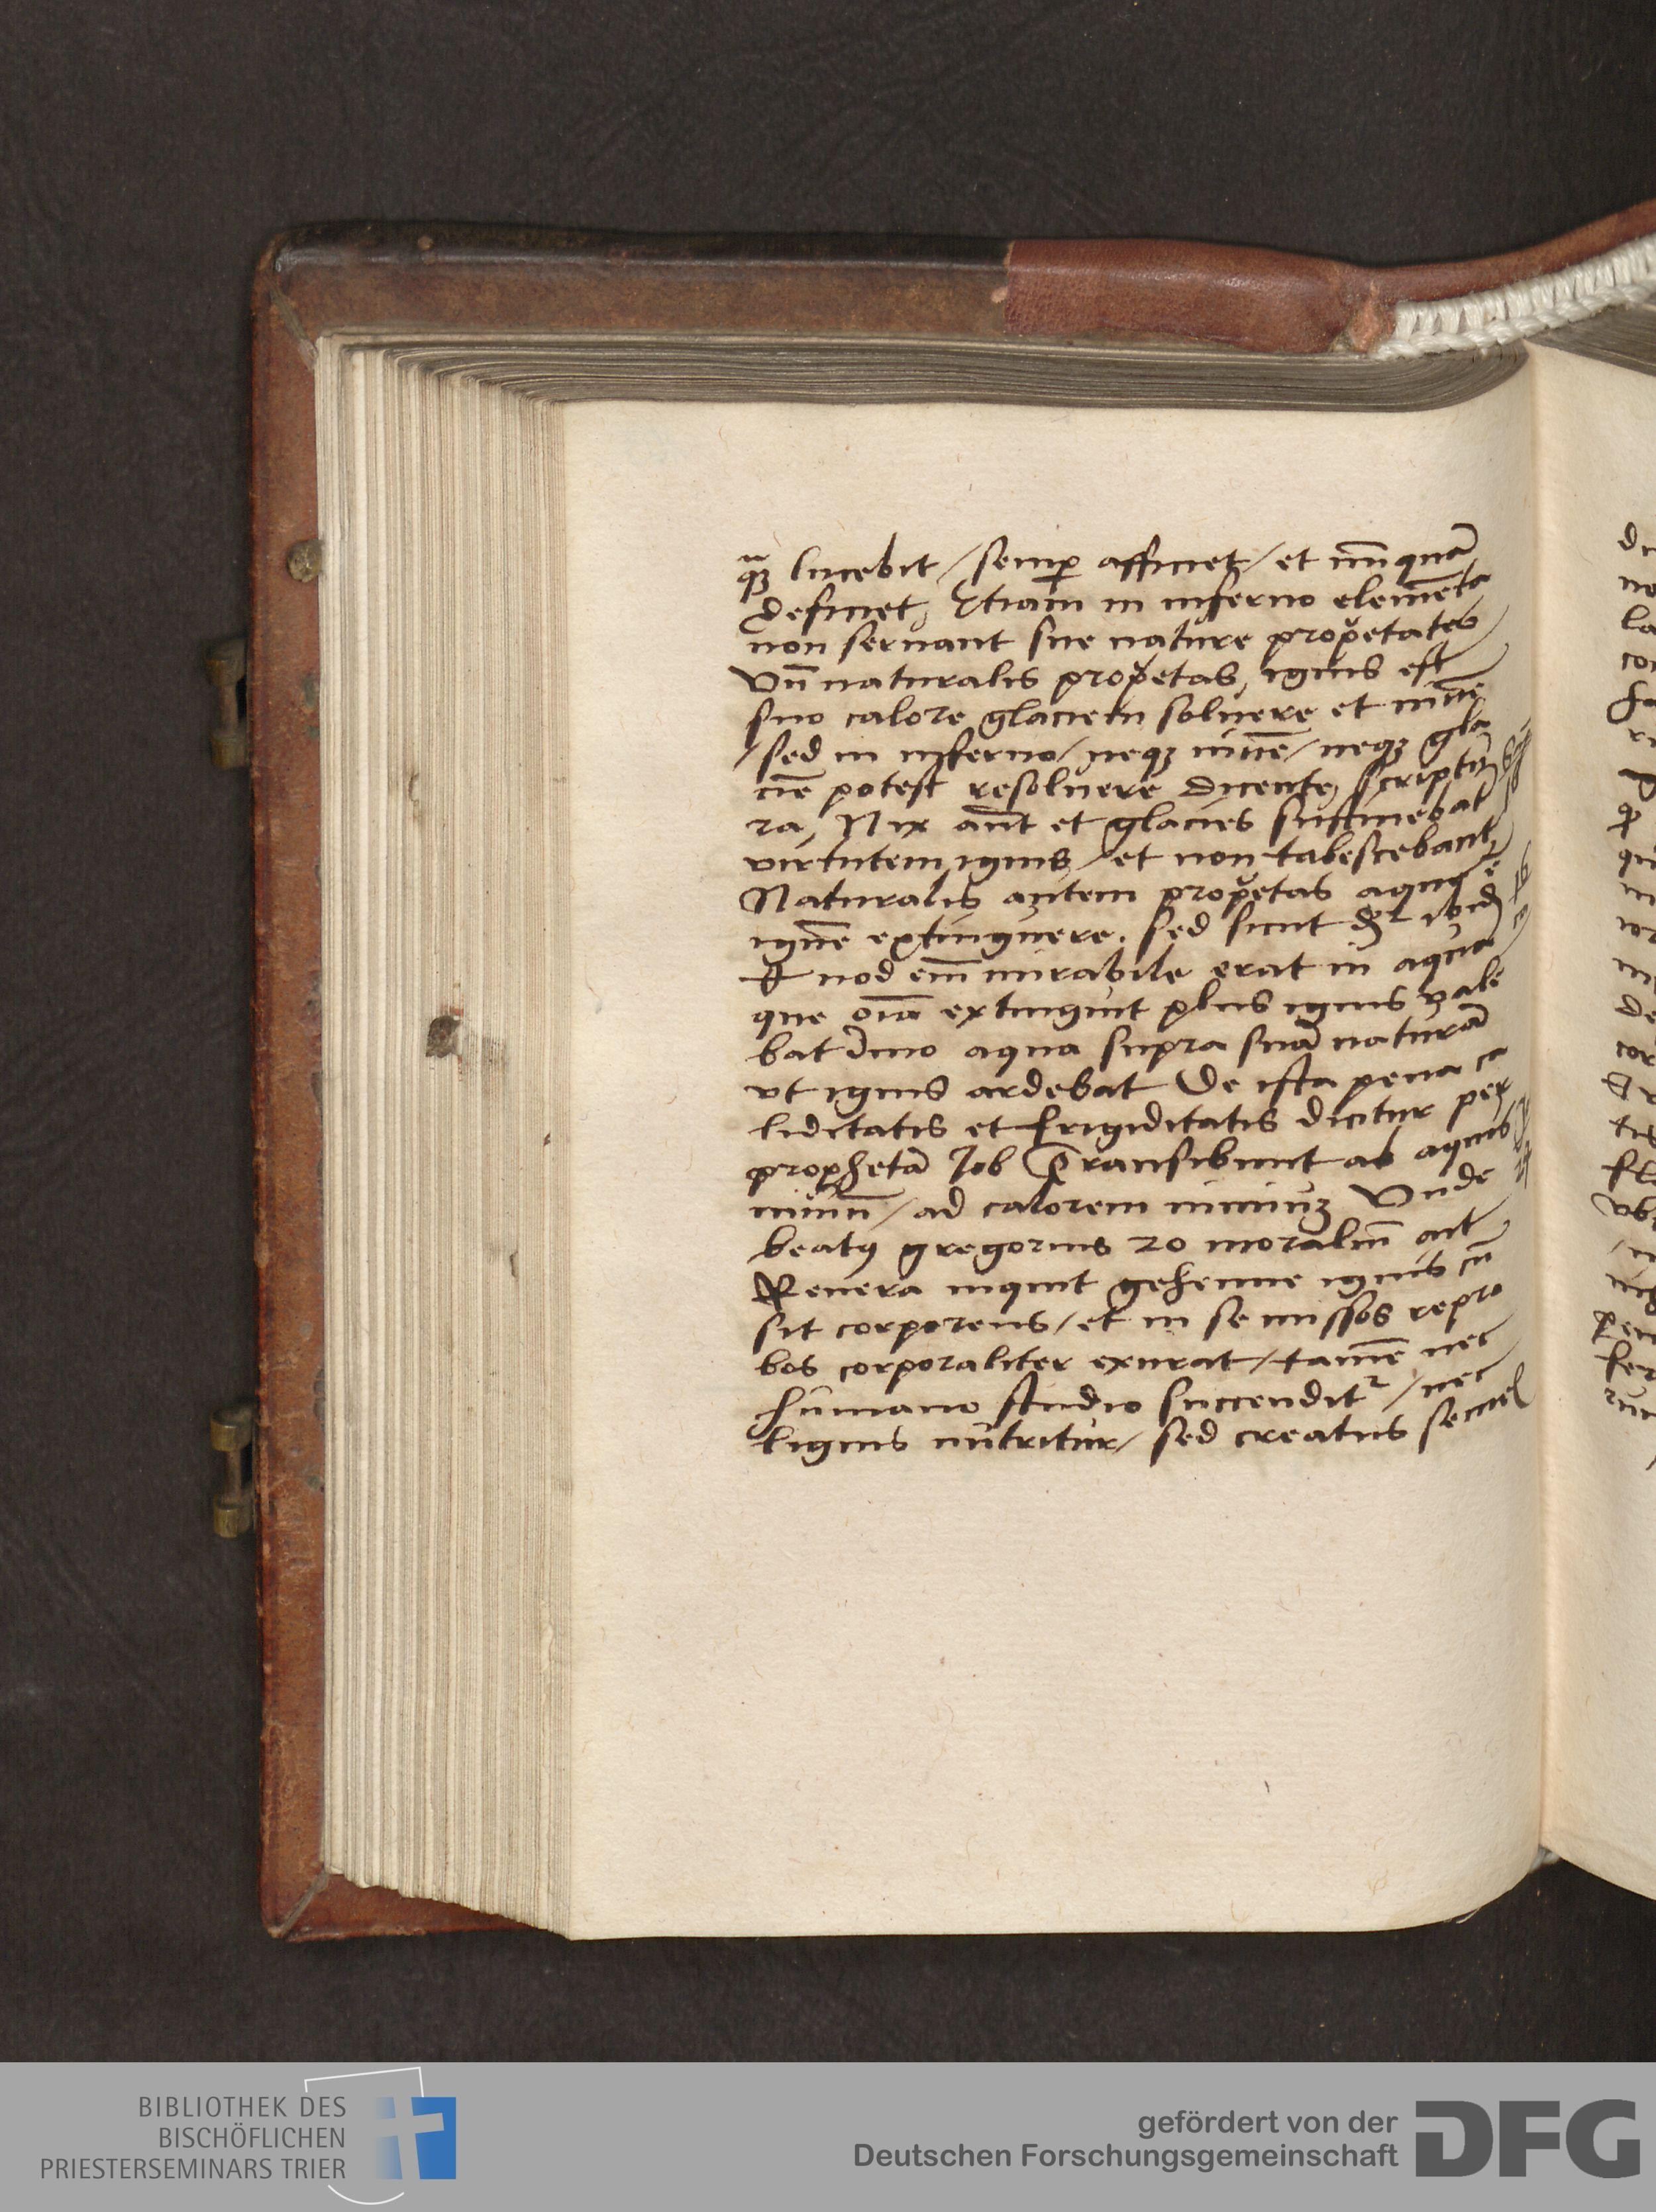 qꝫ lucebit / semꝑ afficiet / et nūquā
deficiet, Etiam in inferno elemēta
non seruant sue nature propetates
Vn̄ naturalis propetas, ignis est
suo calore glaciem soluere et niuē
/ sed in inferno / neqꝫ niuē / neqꝫ gla
ciē potest resoluere dicente scriptu
ra, Nix aūt et glacies sustinebāt
virtutem ignis / et non tabescebant,
Naturalis autem propetas aque ē
ignē extinguere. sed sicut dr̄ ibid
Quod em̄ mirabile erat in aqua
que oīa extinguit plus ignis vale
bat Imo aqua supra suā naturā
vt ignis ardebat De ista pena ca
liditatis et frigiditatis dicitur per
prophetā Job Transibunt ab aquis
niuiū / ad calorem nimiuꝫ Vnde
beatꝰ gregorius 20 moraliū ait
Reuera inquit gehenne ignis cū
sit corporeus / et in se missos repro
bos corporaliter exurat / tamē nec
humano studio succendit᷑ / nec
lignis nutritur / sed creatus semel
BIBLIOTHEK DES
BISCHÖFLICHEN
PRIESTERSEMINARS TRIER
gefördert von der
Deutschen Forschungsgemeinschaft
DFG